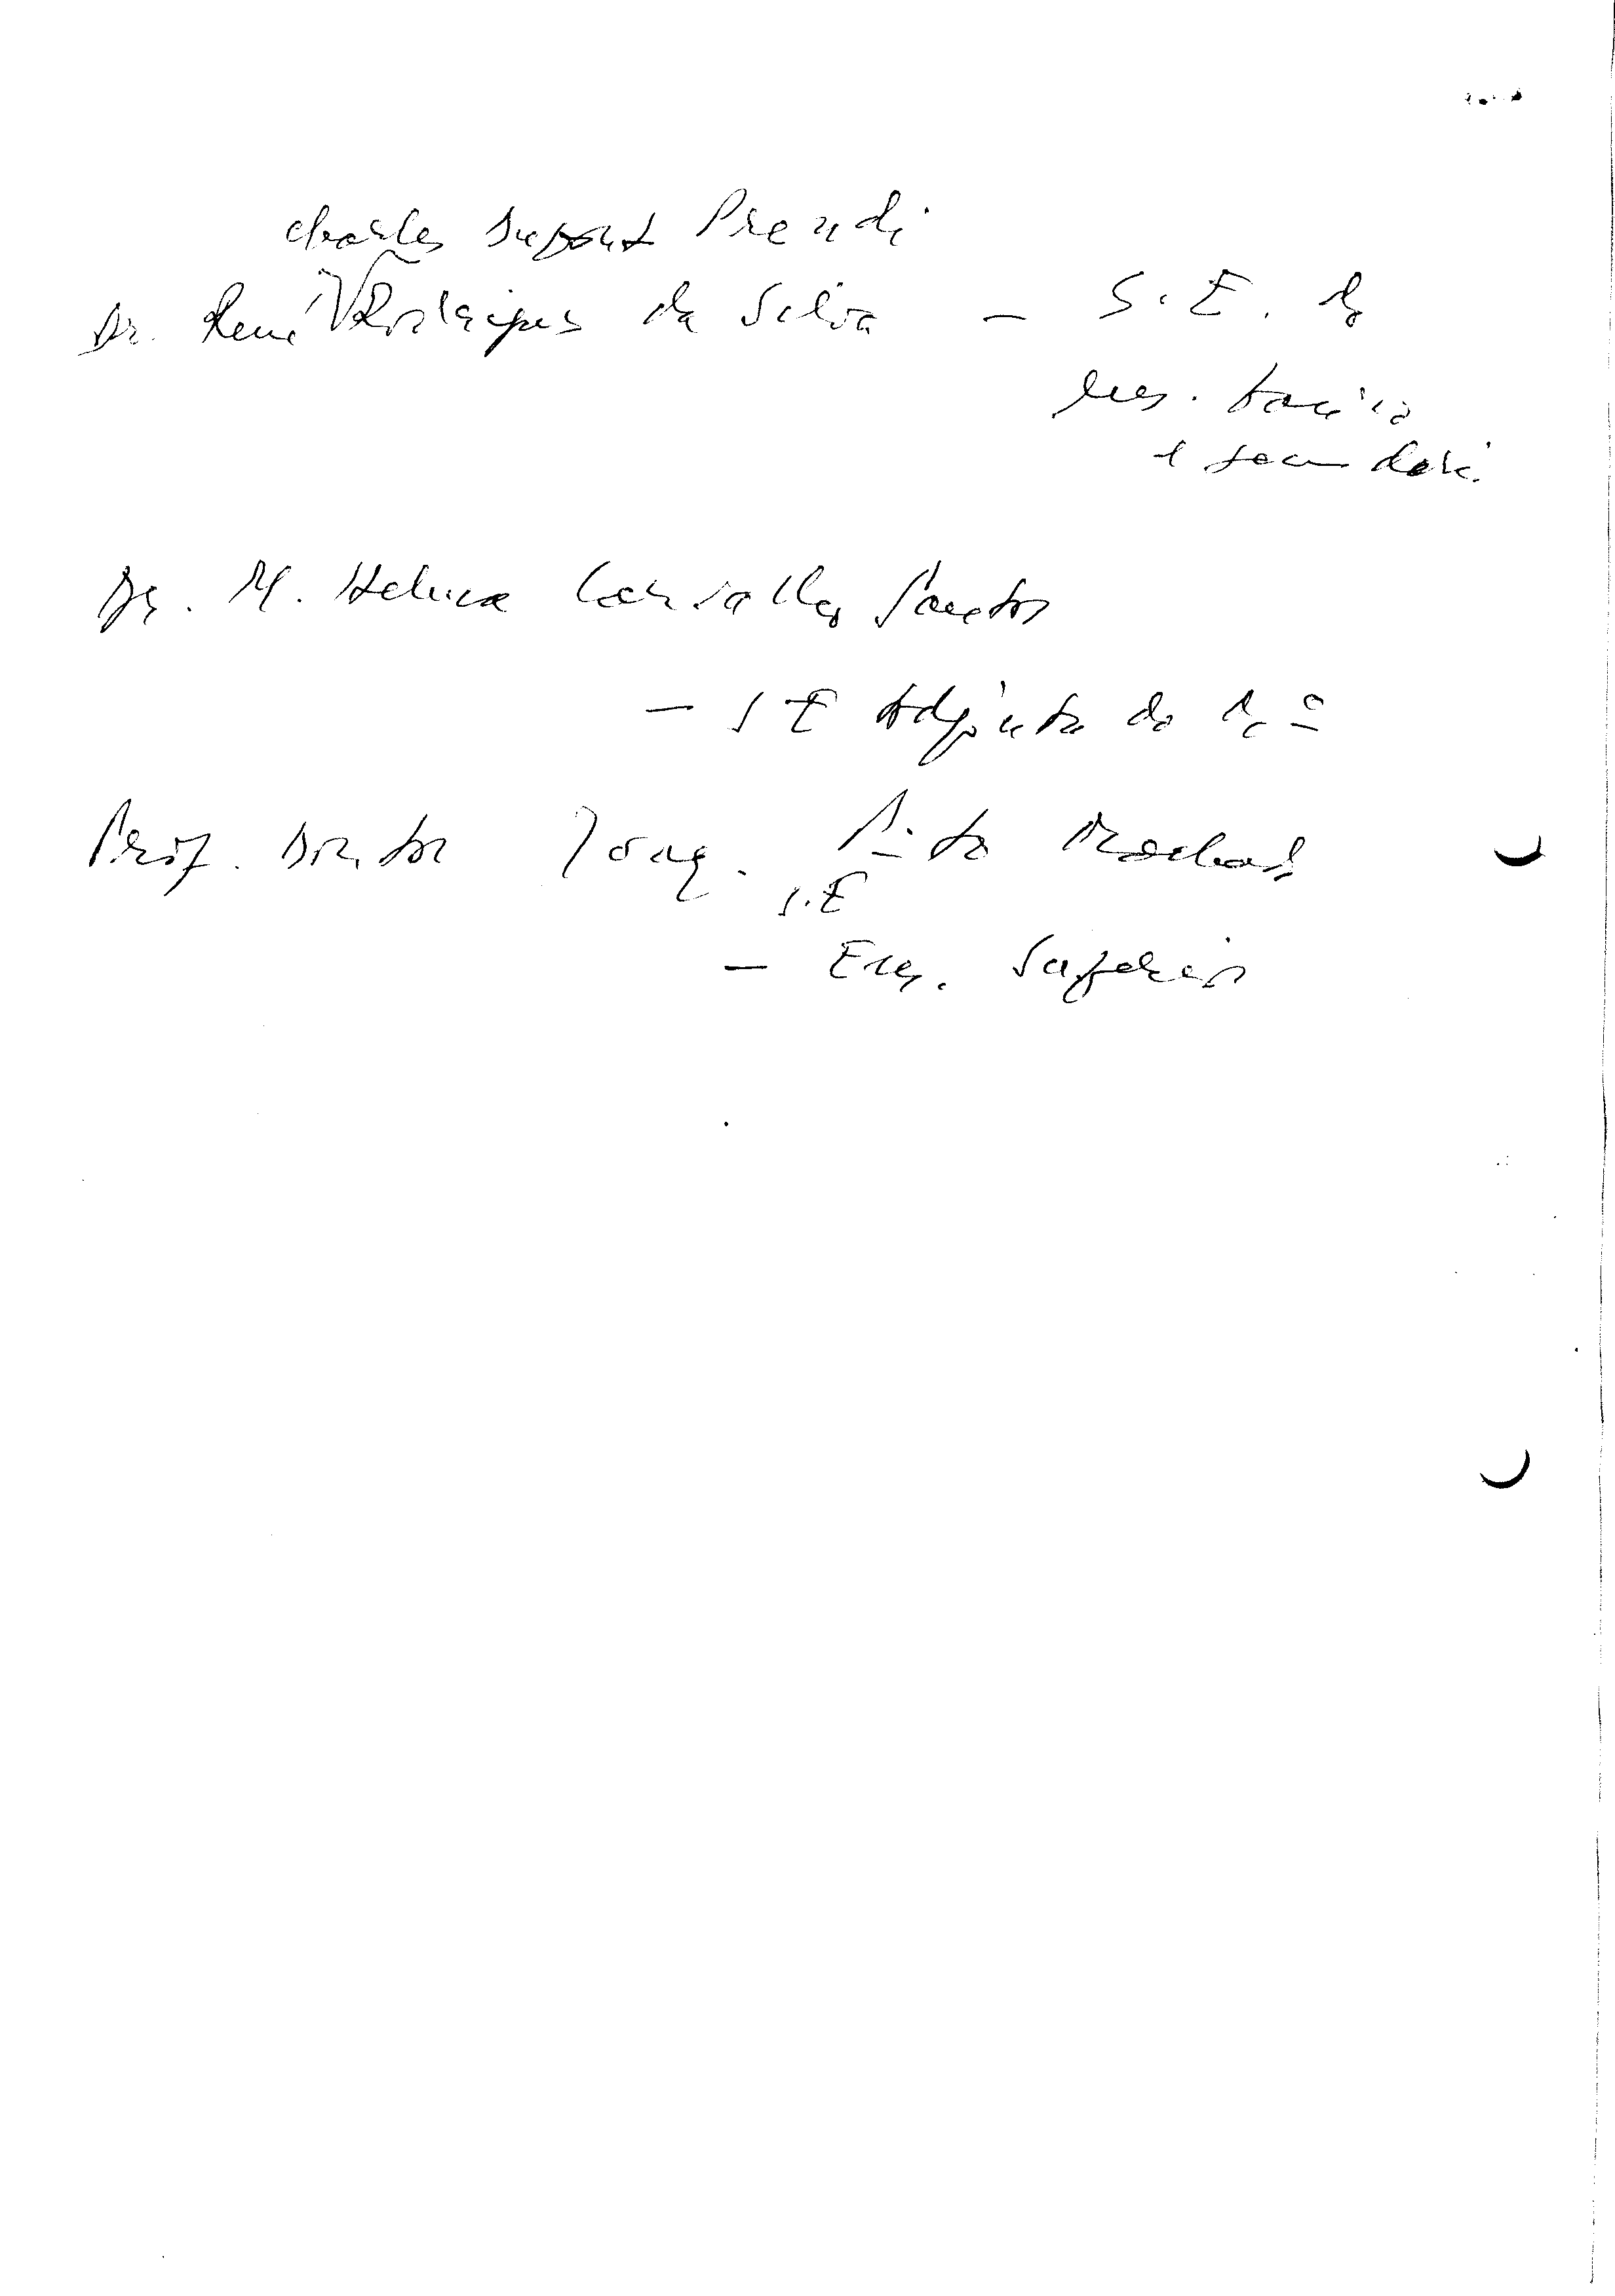 Charles Dupont Prendi
Dr. René Rodrigues da Silva — S. E. do
ens. básico
e secundári.
Dr. M. Helena Carvalho Santos
— S E Adjunta do 1º
Prof. Doutor Joaq. Pinto Machado
S.E
— Ens. Superior